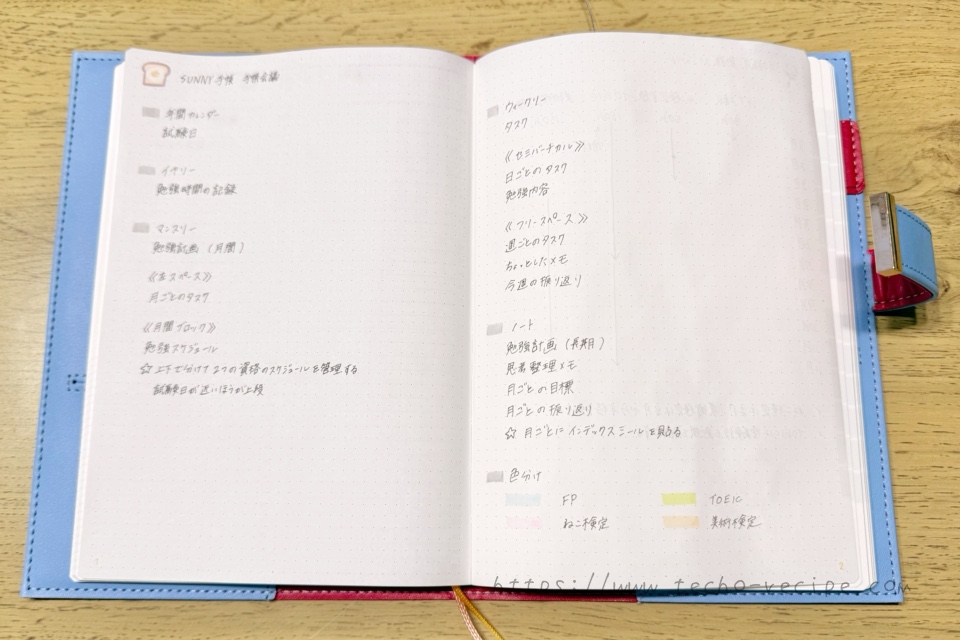 SUNNY手帳 手帳会議
年間カレンダー
試験日
イヤリー
勉強時間の記録
マンスリー
勉強計画（月間）
《左スペース》
月ごとのタスク
《月間ブロック》
勉強スケジュール
☆上下で分けて2つの資格のスケジュールを管理する
試験日が近いほうが上段
ウィークリー
タスク
《セミバーチカル》
日ごとのタスク
勉強内容
《フリースペース》
週ごとのタスク
ちょっとしたメモ
今週の振り返り
ノート
勉強計画（長期）
思考整理メモ
月ごとの目標
月ごとの振り返り
☆月ごとにインデックスシールを貼る
色分け
FP TOEIC
ねこ検定 美術検定
2
https://www.techo-recipe.com/